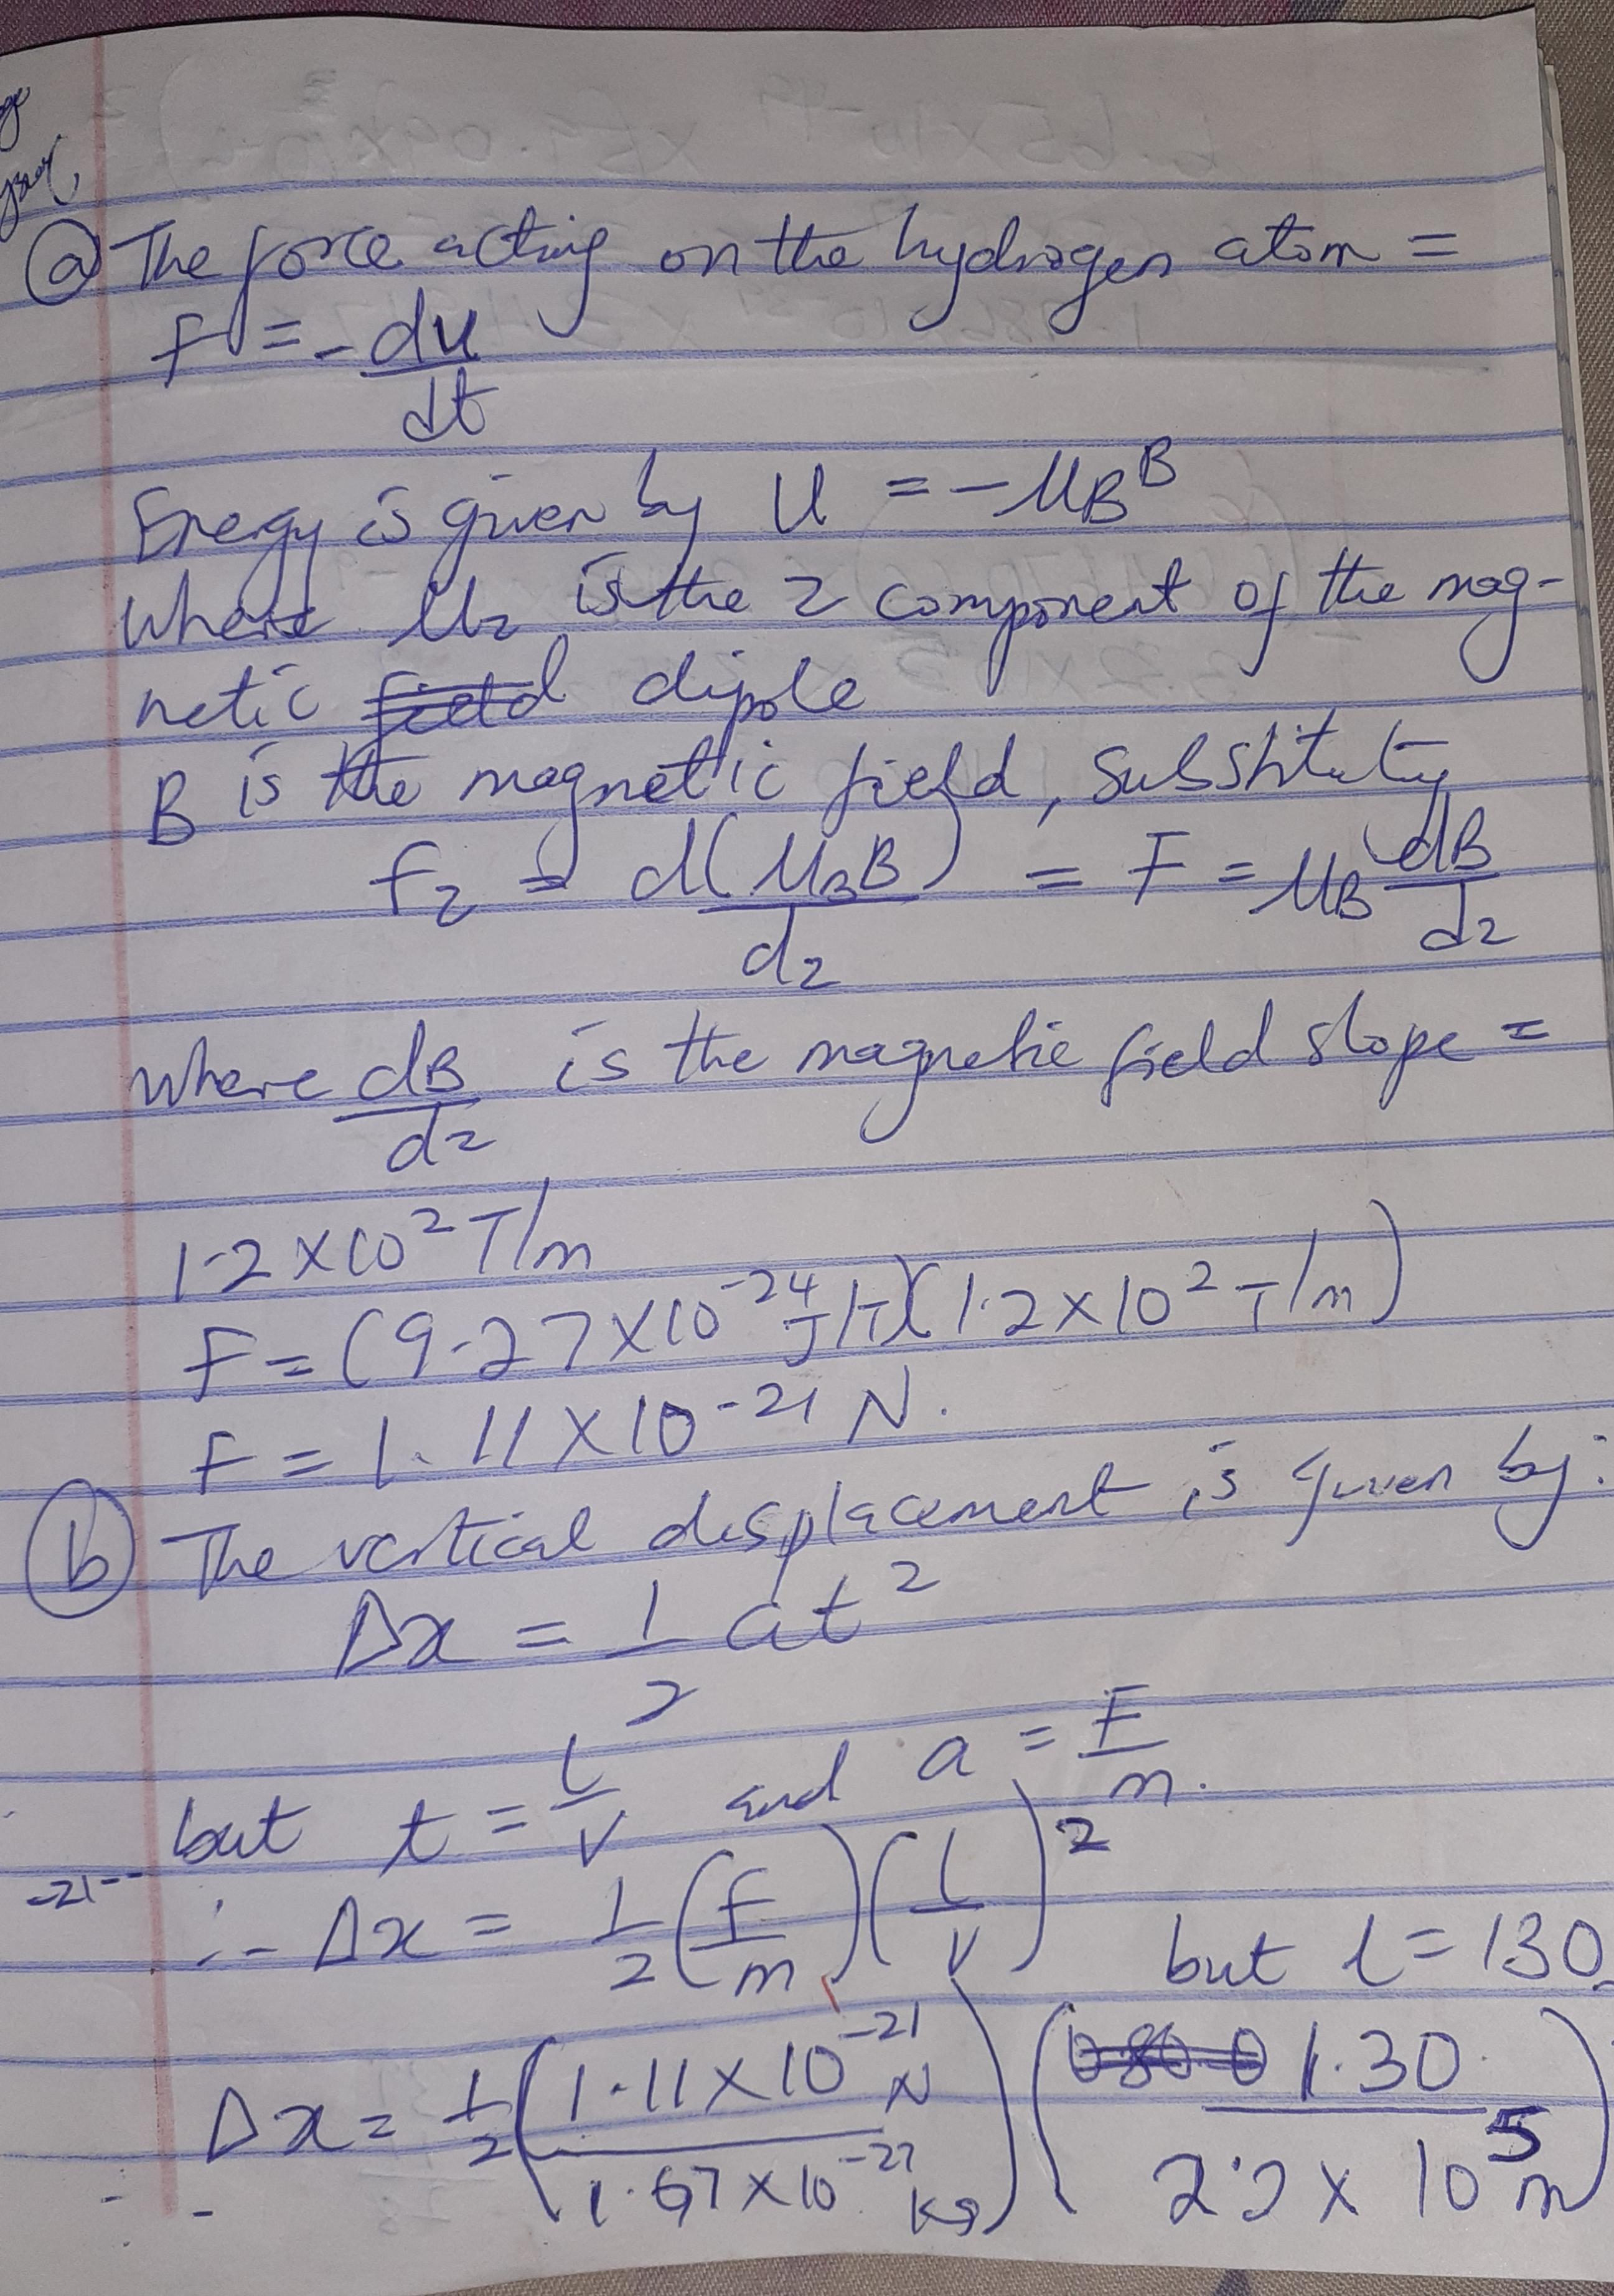 ⓐ The force acting on the hydrogen atom =
F = - du/dt
Energy is given by U = -μ_B B
where μ_z is the z component of the mag-
netic dipole
B is the magnetic field, substituting
F_z = d(μ_B B)/dz = F = μ_B dB/dz
where dB/dz is the magnetic field slope =
1.2 × 10² T/m
F = (9.27 × 10⁻²⁴ J/T)(1.2 × 10² T/m)
F = 1.11 × 10⁻²¹ N.
ⓑ The vertical displacement is given by:
Δx = 1/2 at²
but t = L/V and a = F/m.
-21--
∴ Δx = 1/2 (F/m)(L/V)² but L = 130
Δx = 1/2 (1.11 × 10⁻²¹ N / 1.67 × 10⁻²⁷ kg)(1.30 / × 10⁵ m)